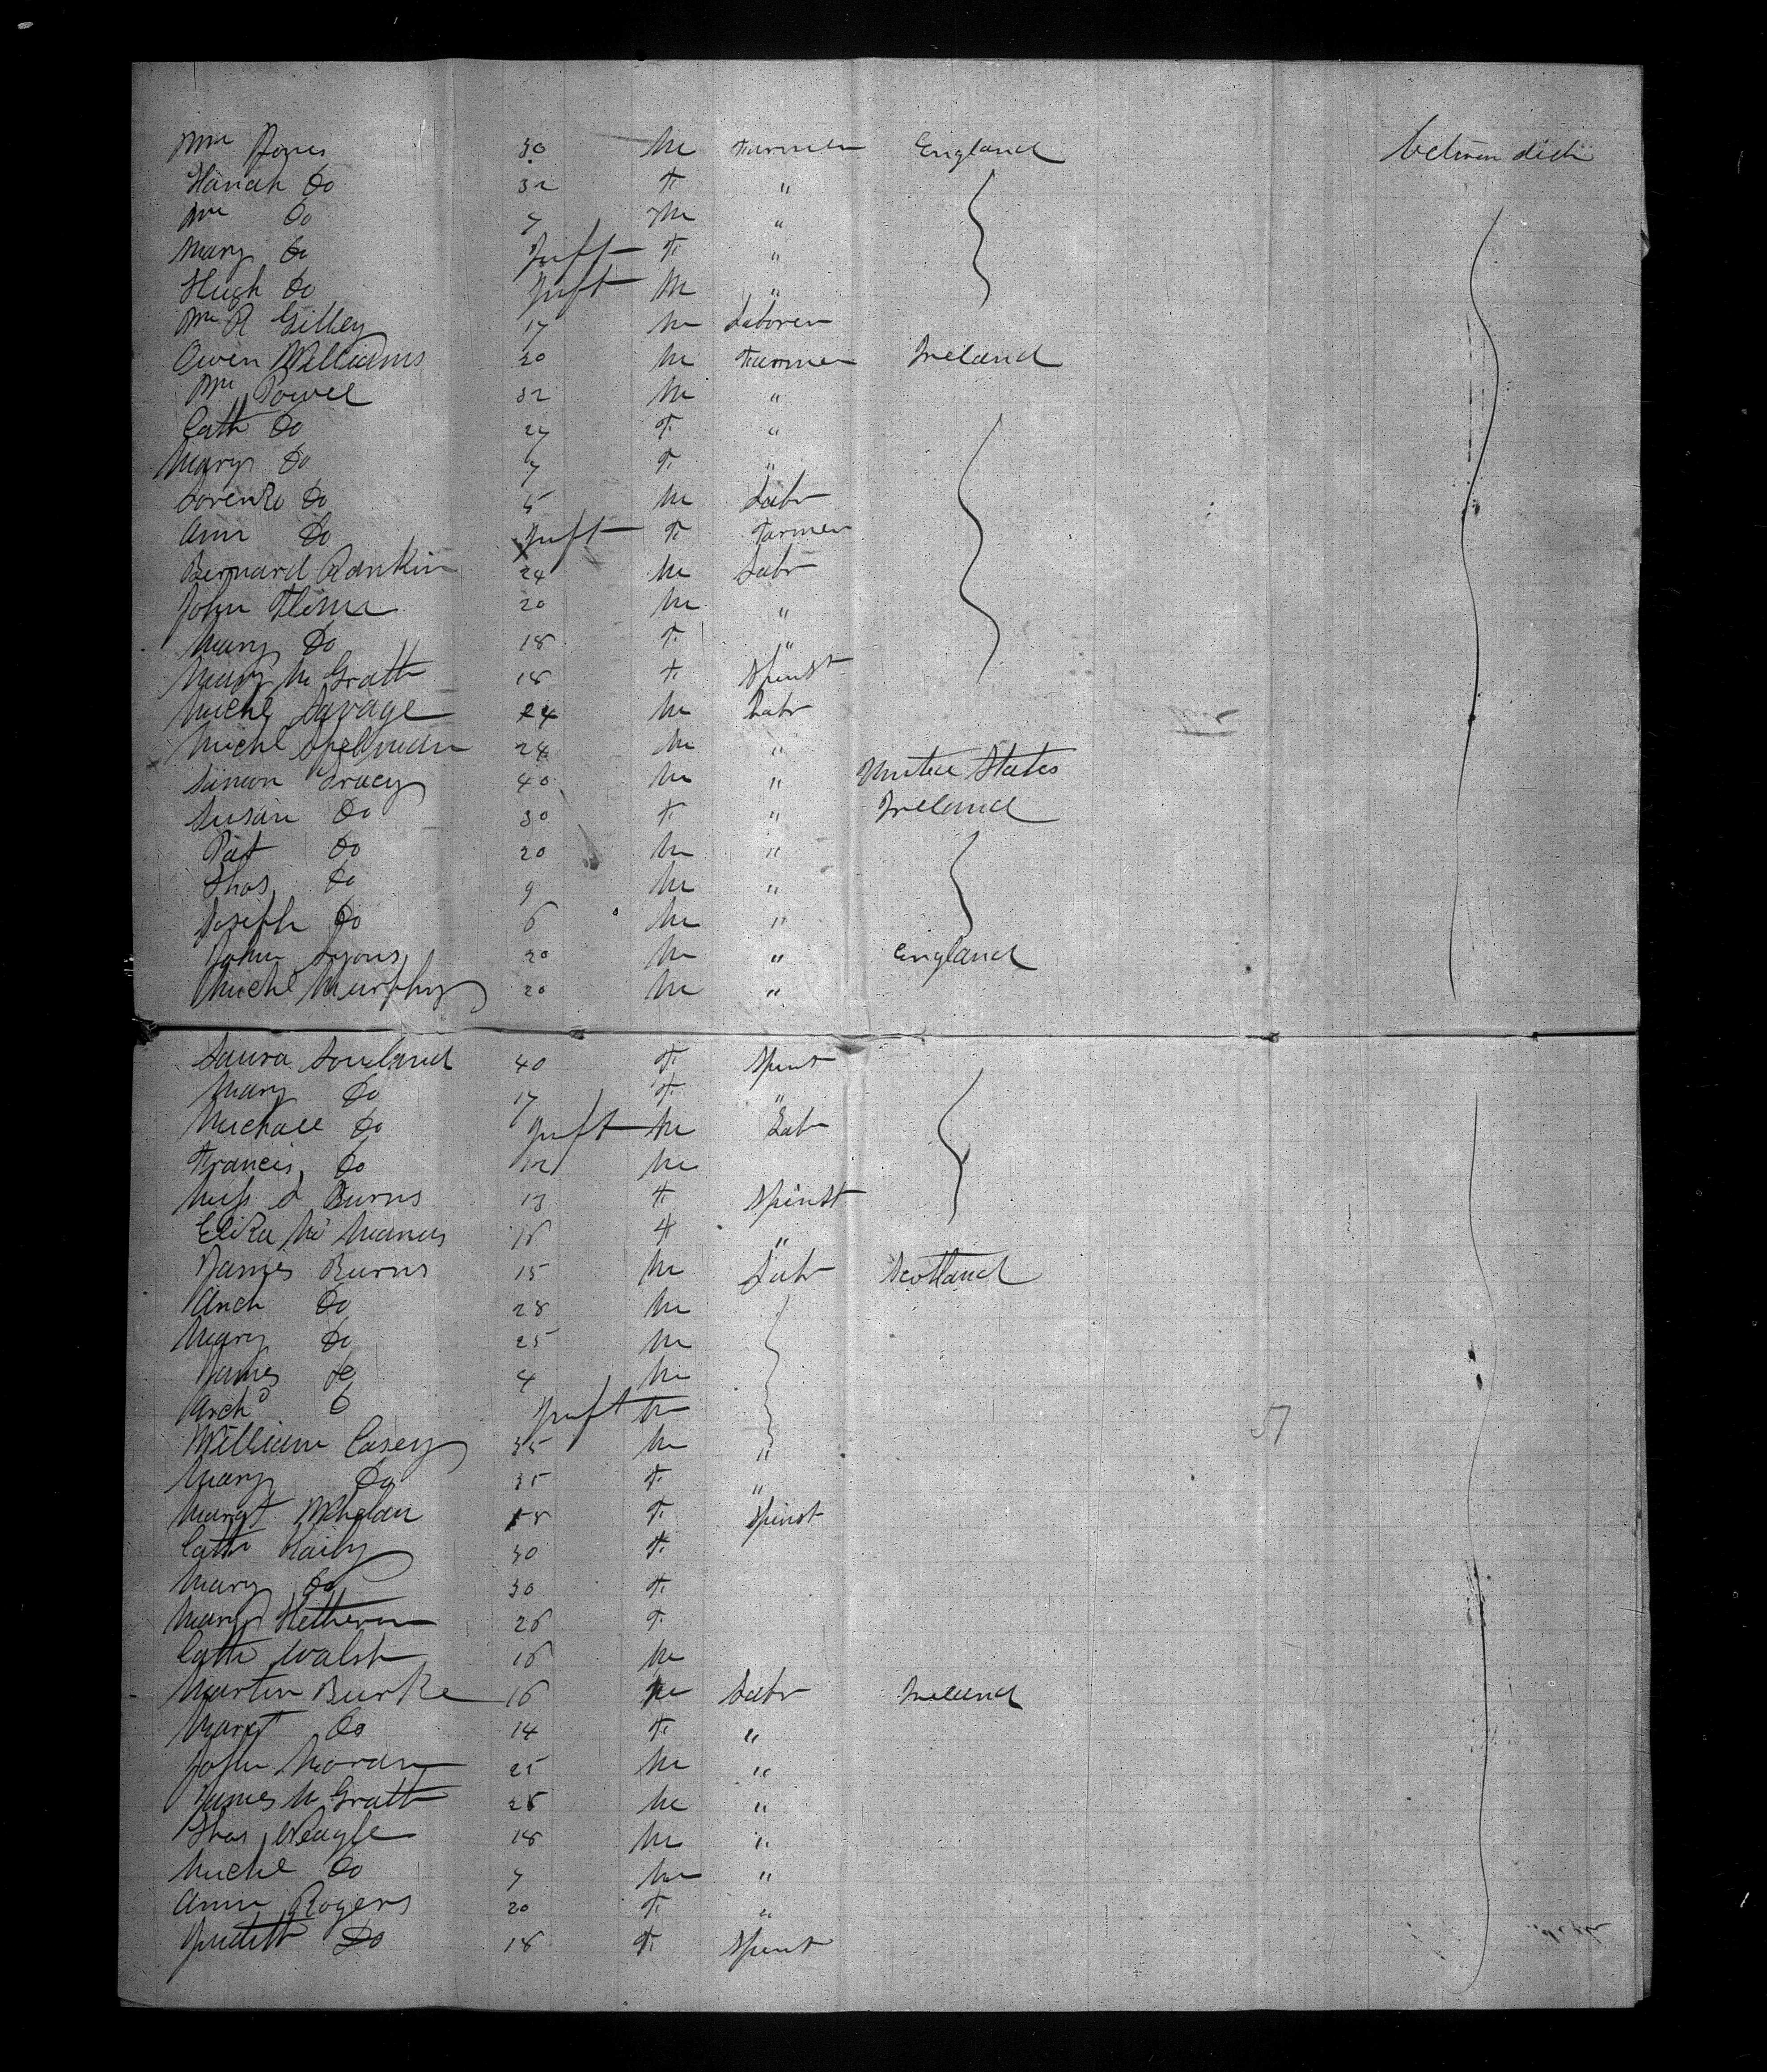 Wm Jones 30 M Farmer England between decks
Hanah Do 32 F "
Wm Do 7 M "
Mary Do Inft F "
Hugh Do Inft M "
Wm R Gilley 17 M Laborer
Owen Williams 20 M Farmer Ireland
Wm Powel 32 M "
Cath Do 27 F "
Mary Do 7 F "
Lorenzo Do 5 M Labr
Ann Do Inft F Farmer
Bernard Rankin 24 M Labr
John Flinn 20 M "
Mary Do 18 F "
Mary Mc Grath 18 F Spinst
Michl Savage 24 M Labr
Michl 28 M "
Simon Tracy 40 M " United States
Susan Do 30 F " Ireland
Pat Do 20 M "
Thos Do 9 M "
Joseph Do 6 M "
John Lyons 20 M " England
Michl Murphy 20 M "
Laura 40 F Spinst
Mary Do 17 F "
Michael Do Inft M Labr
Francis Do 12 M
Miss Burns 13 F Spinst
Eliza Mc Manus 16 F "
James Burns 15 M Labr Scotland
Arch Do 28 M
Mary Do 25 M
James Do 4 M
Archd Do Inft M
William Casey 35 M "
Mary Do 35 F "
Margt Whelan 18 F Spinst
Cath 30 F
Mary Do 30 F
Mary 26 F
Cath Walsh 16 M
Martin Burke 16 M Labr Ireland
Margt Do 14 F "
John Moran 25 M "
James Mc Grath 25 M "
Thos Neagle 18 M "
Michl Do 7 M "
Ann Rogers 20 F "
Judith Do 18 F Spinst